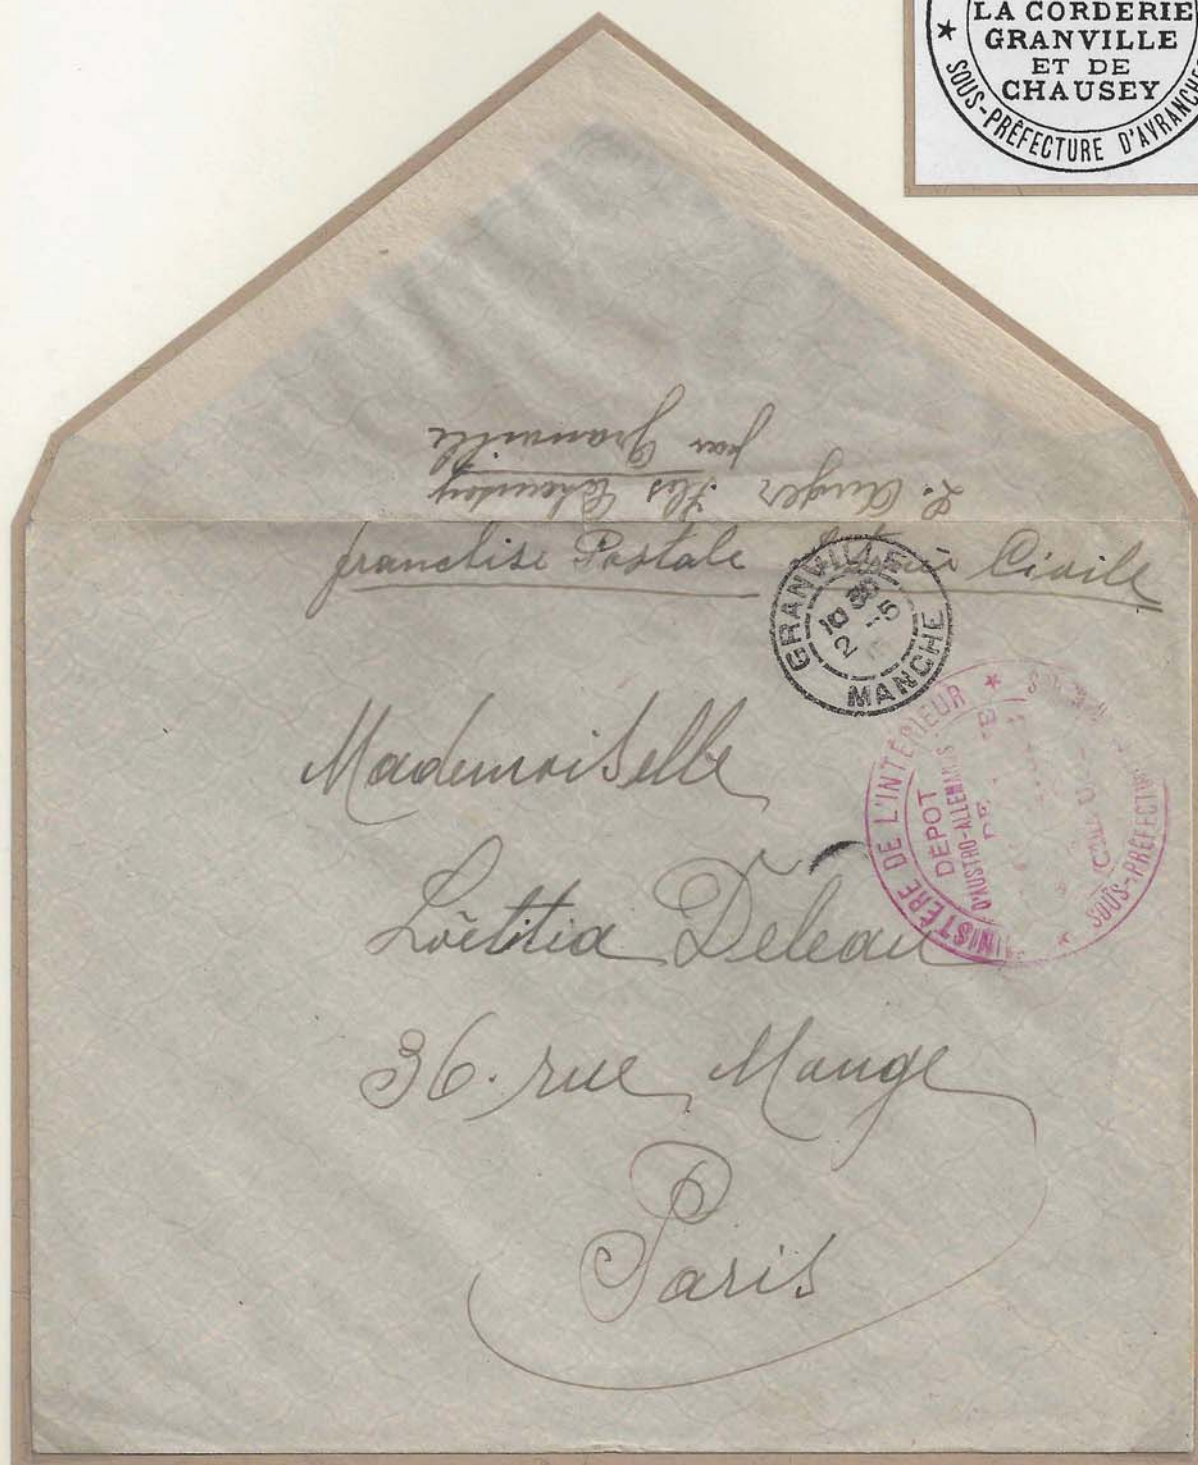 LA CORDERIE
GRANVILLE
ET DE
CHAUSEY
SOUS-PRÉFECTURE D'AVRANCHES
L. Auger Iles Chausey
par Granville
franchise Postale Civile
GRANVILLE
10 30
2 -5
MANCHE
MINISTÈRE DE L'INTÉRIEUR
DÉPOT
D'AUSTRO-ALLEMANDS
DE
SOUS-PRÉFECTURE
Mademoiselle
Loëtitia Deleau
36. rue Monge
Paris